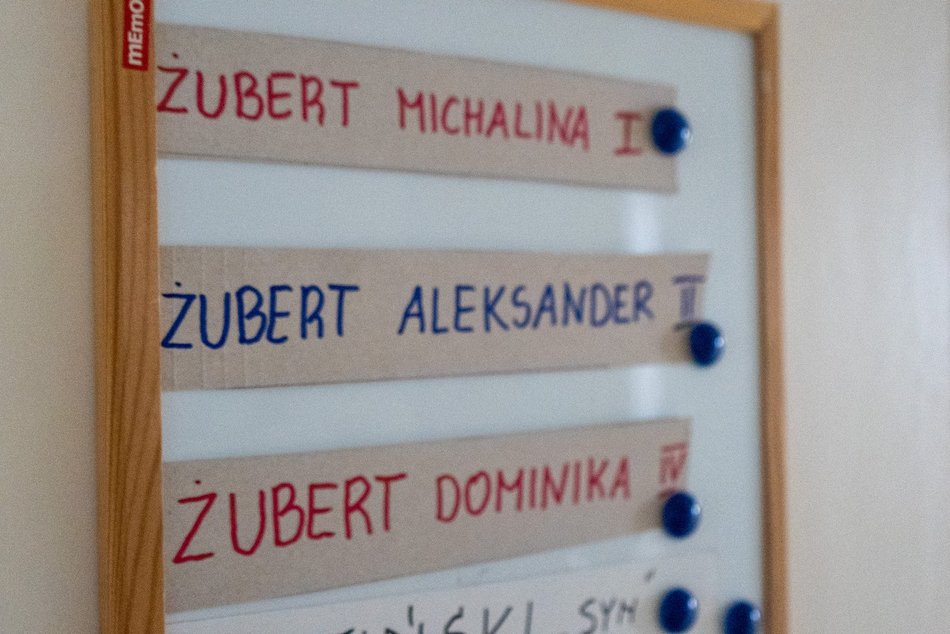 mEmO
ŻUBERT MICHALINA I
ŻUBERT ALEKSANDER II
ŻUBERT DOMINIKA IV
SYN